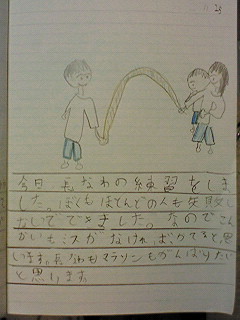 23
今日、長なわの練習をしま
した。ぼくもほとんどの人も失敗し
ないでできました。なのでこん
かいもミスがなければいけると思
います。長なわもマラソンもがんばりたい
と思ります